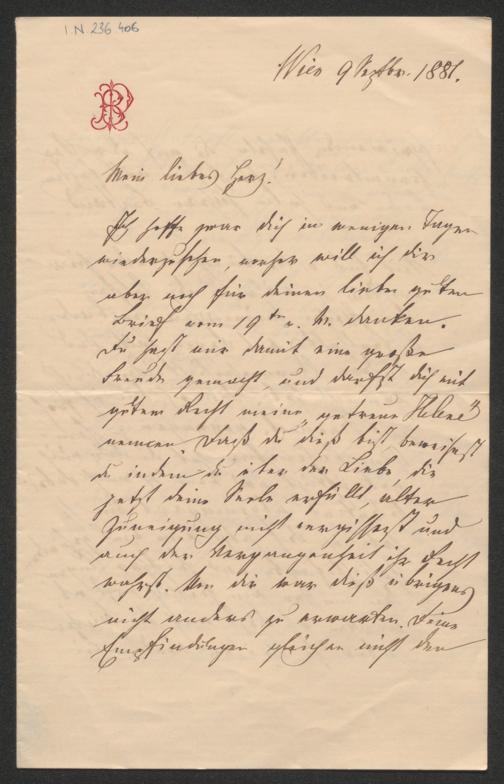 I.N. 236.406
Wien 9 Septbr. 1881.
BR
Mein liebes Herz!
Ich hoffe zwar dich in wenigen Tagen
wiederzusehen, vorher will ich dir
aber noch für deinen lieben guten
Brief vom 19ten v. M. danken.
Du hast mir damit eine große
Freude gemacht, und darfst dich mit
gutem Recht meine „getreue Helene"
nennen. Daß du dieß bist beweisest
du indem du über der Liebe, die
jetzt deine Seele erfüllt, alter
Zuneigung nicht vergissest und
auch der Vergangenheit ihr Recht
wahrst. Von dir war dieß übrigens
nicht anders zu erwarten. Deine
Empfindungen gleichen nicht den